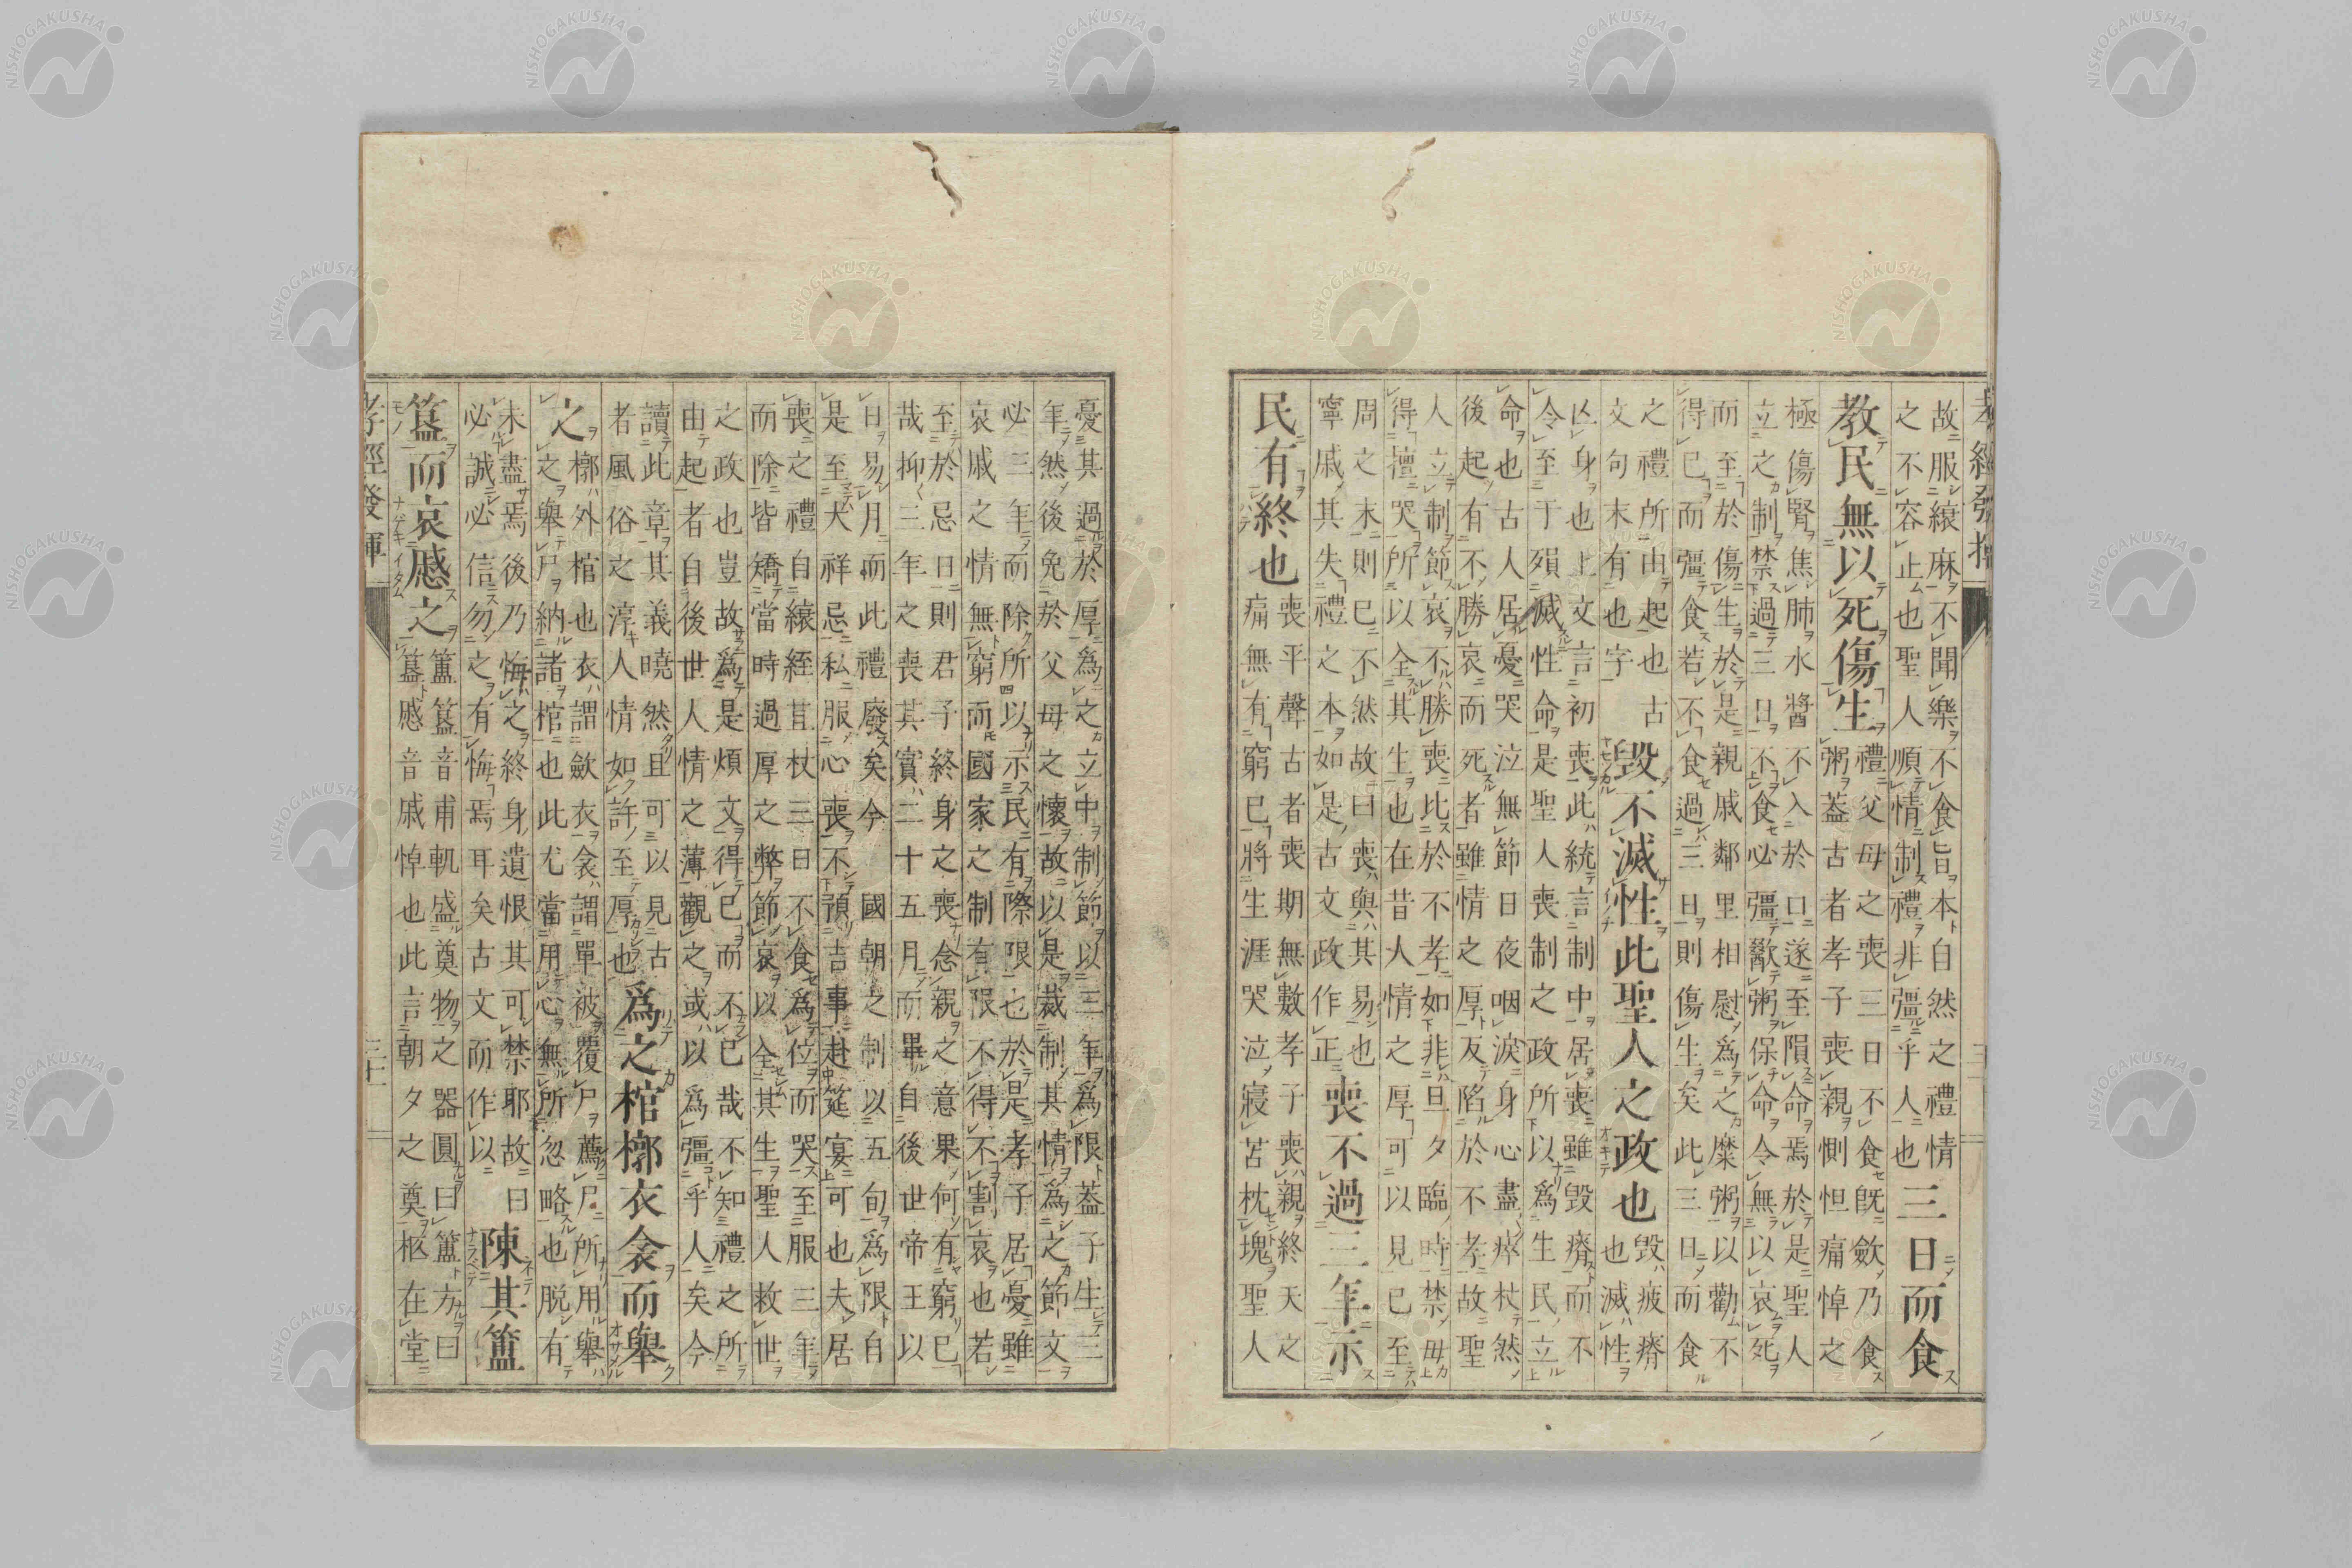 故服縗麻不聞樂不食旨本自然之禮情
之不容止也聖人順情制禮非彊乎人也
三日而食
教民無以死傷生
禮父母之喪三日不食既歛乃食
粥蓋古者孝子喪親惻怛痛悼之
極傷腎焦肺水醬不入於口遂至隕命焉於是聖人
立之制禁過三日不食必彊歠粥保命令無以哀死
而至於傷生於是親戚鄰里相慰爲之糜粥以勸不
得已而彊食若不食過三日則傷生矣此三日而食
之禮所由起也古
文句末有也字
毀不滅性此聖人之政也
毀疲瘠
也滅性
亾身也上文言初喪此統言制中居喪雖毀瘠而不
令至于殞滅性命是聖人喪制之政所以爲生民立
命也古人居憂哭泣無節日夜咽淚身心盡瘁杖然
後起有不勝哀而死者雖情之厚反陷於不孝故聖
人立制節哀不勝喪比於不孝如非旦夕臨時禁毋
得擅哭所以全其生也在昔人情之厚可以見已至
周之末則已不然故曰喪與其易也
寧戚其失禮之本如是古文政作正
喪不過三年示
民有終也
喪平聲古者喪期無數孝子喪親終天之
痛無有窮已將生涯哭泣寢苫枕塊聖人
憂其過於厚爲之立中制節以三年爲限蓋子生三
年然後免於父母之懷故以是裁制其情爲之節文
必三年而除所以示民有際限也於是孝子居憂雖
哀戚之情無窮而國家之制有限不得不割哀也若
至於忌日則君子終身之喪念親之意果何有窮已
哉抑三年之喪其實二十五月而畢自後世帝王以
日易月而此禮廢矣今 國朝之制以五旬爲限自
是至大祥忌私服心喪不預吉事赴筵宴可也夫居
喪之禮自縗絰苴杖三日不食爲位而哭至服三年
而除皆矯當時過厚之弊節哀以全其生聖人救世
之政也豈故爲是煩文得已而不已哉不知禮之所
由起者自後世人情之薄觀之或以爲彊乎人矣今
讀此章其義曉然且可以見古
者風俗之淳人情如許至厚也
爲之棺槨衣衾而舉
之
槨外棺也衣謂歛衣衾謂單被覆尸薦尸所用舉
之舉尸納諸棺也此尤當用心無所忽略也脱有
未盡焉後乃悔之終身遺恨其可禁耶故曰
必誠必信勿之有悔焉耳矣古文而作以
陳其簠
簋而哀慼之
簠簋音甫軌盛奠物之器圓曰簠方曰
簋慼音戚悼也此言朝夕之奠柩在堂
孝經發揮